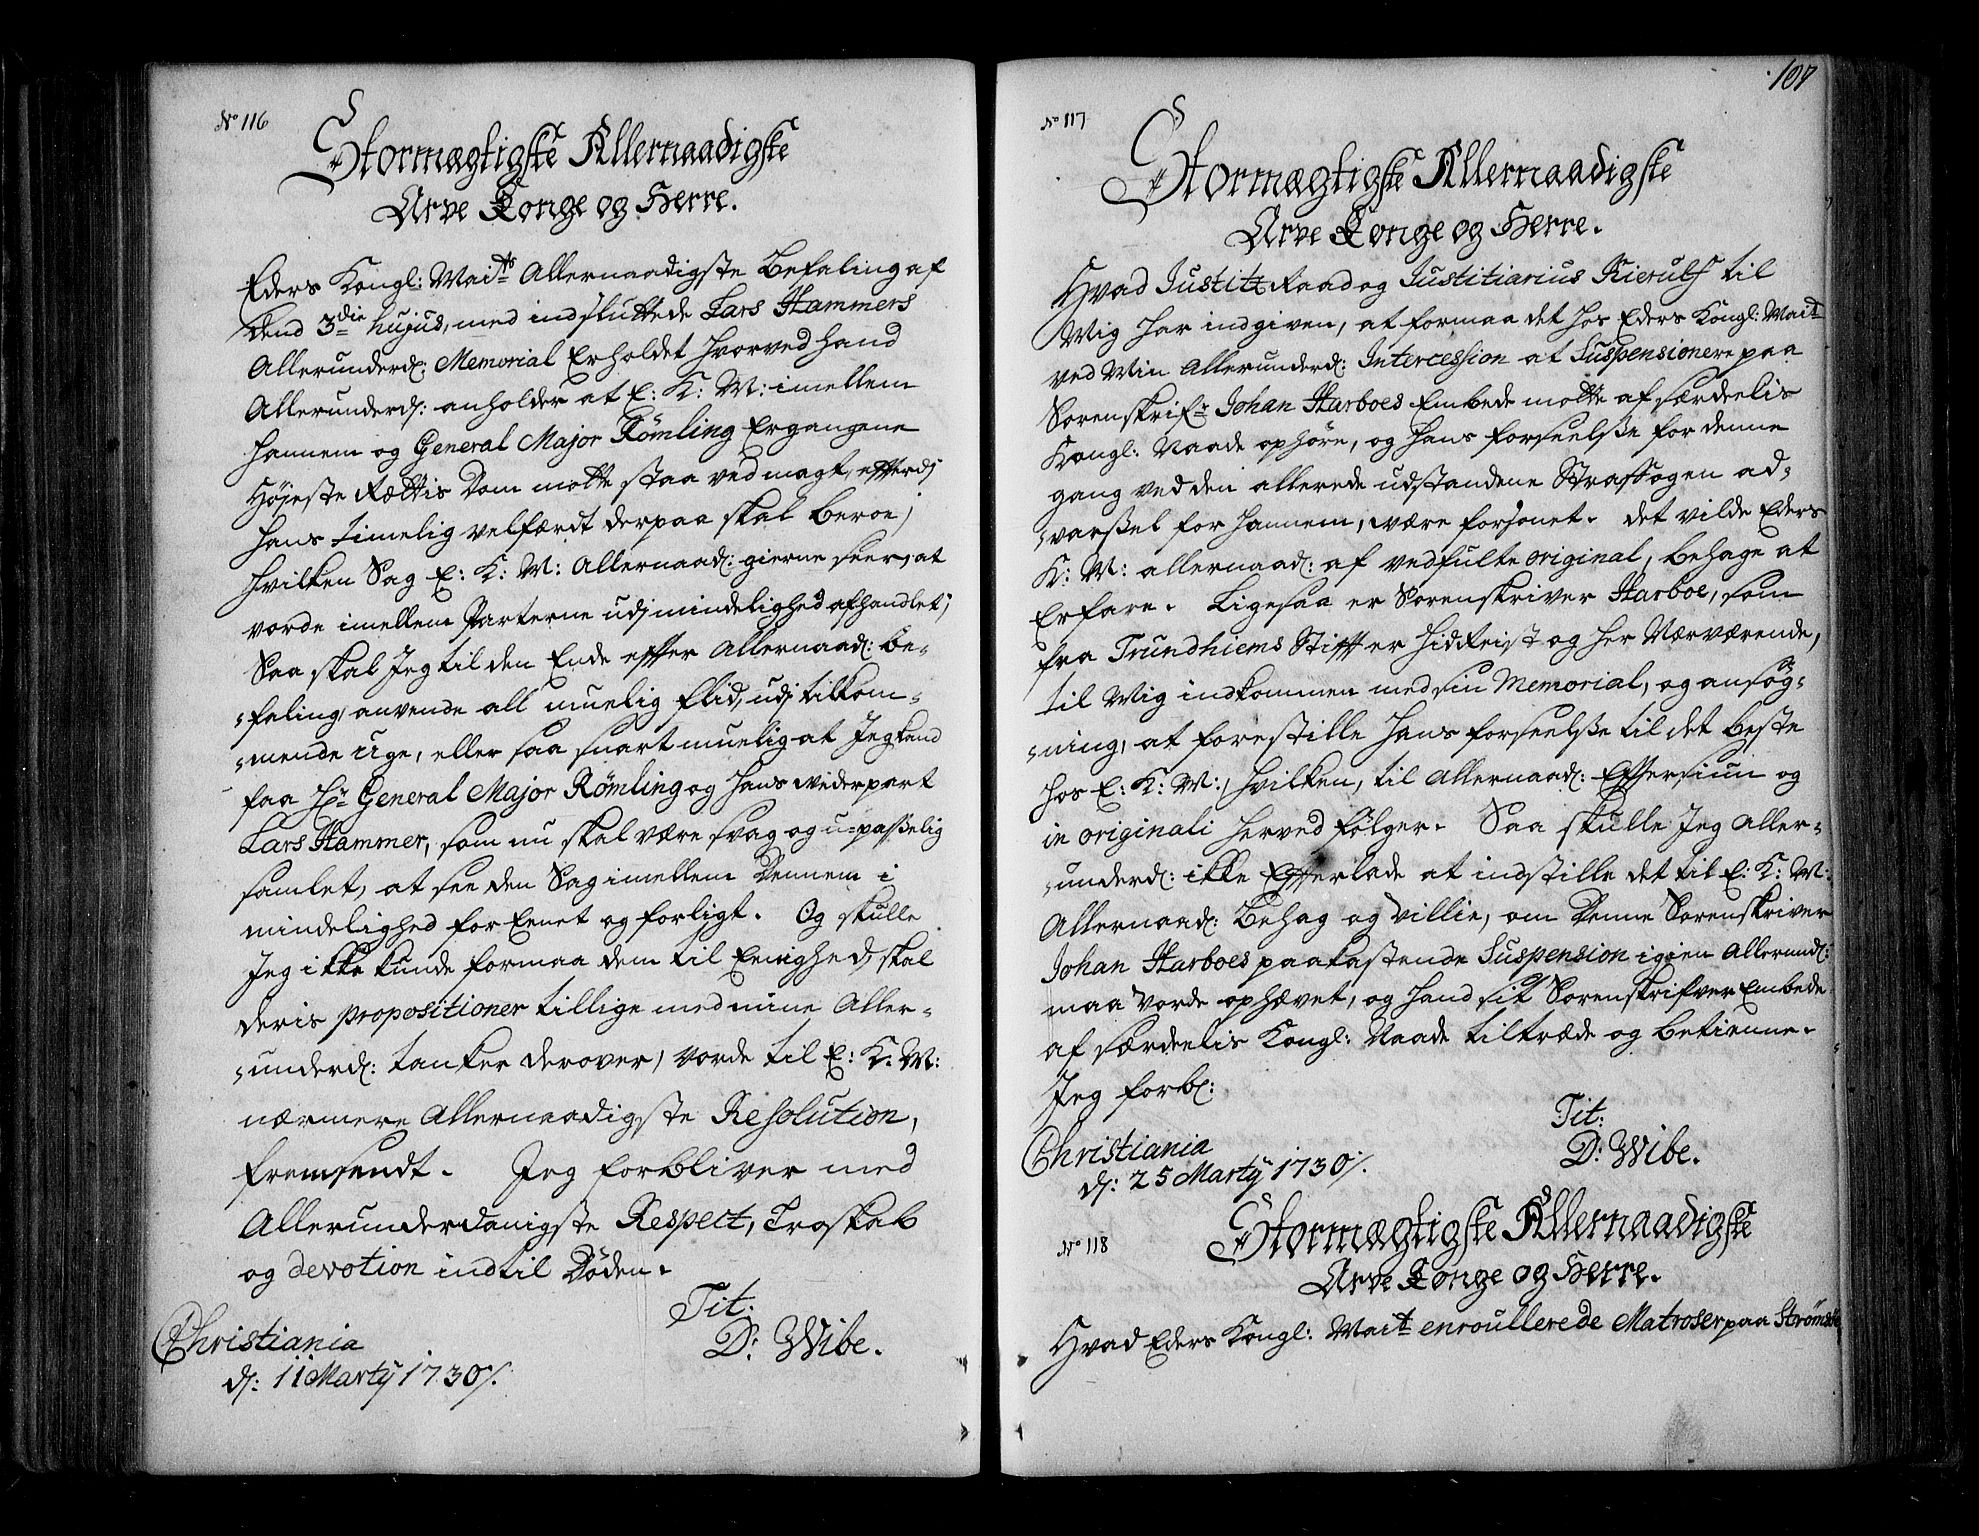 No 116
Stormægtigste Allernaadigste
Arve Konge og Herre.
Eders Kongl: Maits Allernaadigste Befaling af
dend 3die hujus, med indsluttede Lars Hammers
Allerunderd: Memorial Erholdet hvorved hand
Allerunderd: anholder at E: K: M: imellem
hannem og General Major Rømling Ergangene
Højeste Rættis Dom motte staa ved magt, efterdj
hans timelig velfærdt derpaa skal beroe;
hvilken Sag E: K: M: Allernaad: gierne seer, at
vorde imellem Parterne udj mindelighed afhandlet;
Saa skal Jeg til den Ende effter Allernaad: be-
-faling, anvende all muelig flid, udj tilkom-
-mende uge, eller saa snart muelig at Jeg kand
faa Hr General Major Rømling og hans wederpart
Lars Hammer, som nu skal være svag og u-passelig
samlet, at see den Sag imellem Dennem i
mindelighed foreenet og forligt. Og skulle
Jeg ikke kunde formaa dem til Eenighed, skal
deris propositioner tillige med mine Aller-
-underd: tanker derover, vorde til E: K: M:
nærmere Allernaadigste Resolution,
fremsendt. Jeg forbliver med
Allerunderdanigste Respect, Troskab
og devotion indtil Døden.
Tit:
D: Wibe.
Christiania
d: 11 Marty 1730/.
107
No 117
Stormægtigste Allernaadigste
Arve Konge og Herre.
Hvad Justitz Raad og Justitiarius Kierulf til
Mig har indgiven, at formaa det hos Eders Kongl: Mait
ved Min Allerunderd: Intercession at Suspensionere paa
Sorenskrifr Johan Harboes Embede motte af særdeelis
Kongl: Naade ophøre, og hans forseelße for denne
gang ved den allerede udstandene Straf Sogen ad-
-varßel for hannem, være forsonet. det vilde Eders
K: M: allernaad: af vedfulte original, behage at
Erfare. Ligesaa er Sorenskriver Harboe, som
fra Trundhiems Stifft er hidreist og her Nærværende,
til Mig indkommen med sin Memorial, og ansøg-
-ning, at forestille hans forseelße til det beste
hos E: K: M:, hvilken, til Allernaad: Effersiun og
in originali herved følger. Saa skulle Jeg Aller-
-underd: ikke Efferlade at indstille det til E: K: M:
Allernaad: Behag og Villie, om Denne Sorenskriver
Johan Harboes paakastende Suspension igien Allerund:
maa vorde ophævet, og hand sit Sorenskrifver Embede
af særdeelis Kongl: Naade tiltræde og betienne.
Jeg forbl:
Tit:
D: Wibe.
Christiania
d: 25 Marty 1730/.
No 118
Stormægtigste Allernaadigste
Arve Konge og Herre.
Hvad Eders Kongl: Mait enroullerede Matroser paa